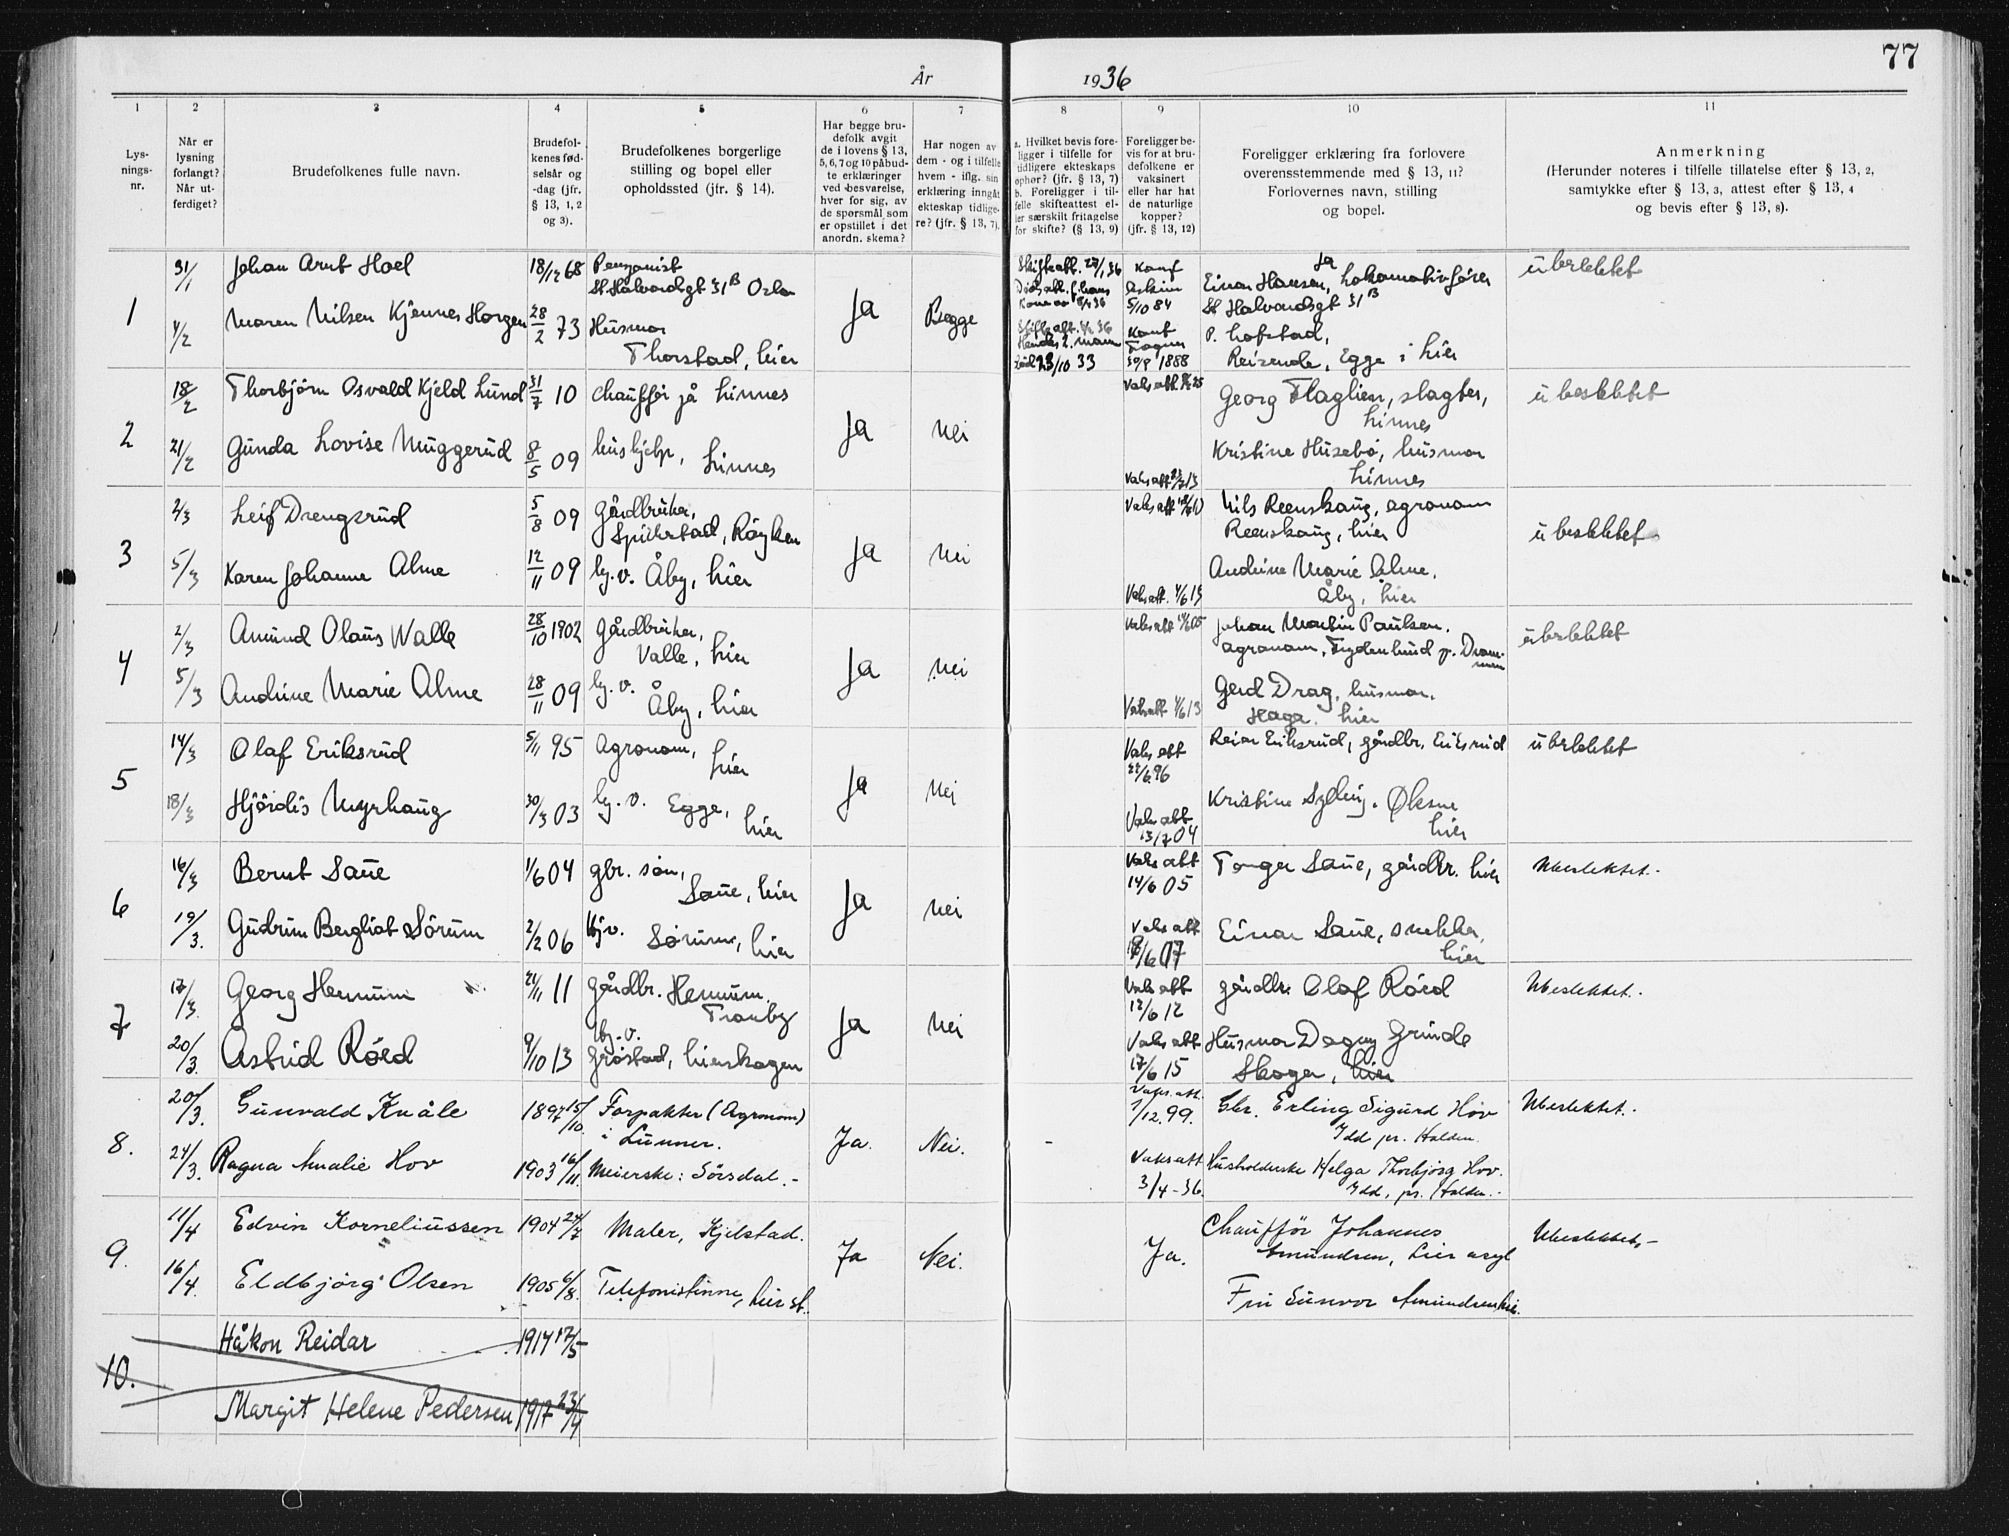 År 1936
77
1 2 3 4 5 6 7 8 9 10 11
Lysningsnr.
Når er lysning forlangt? Når utferdiget?
Brudefolkenes fulle navn.
Brudefolkenes fødselsår og -dag (jfr. § 13, 1, 2 og 3).
Brudefolkenes borgerlige stilling og bopel eller opholdssted (jfr. § 14).
Har begge brudefolk avgit de i lovens § 13, 5, 6, 7 og 10 påbudte erklæringer ved besvarelse, hver for sig, av de spørsmål som er opstillet i det anordn. skema?
Har nogen av dem - og i tilfelle hvem - iflg. sin erklæring inngått ekteskap tidligere? (jfr. § 13, 7).
a. Hvilket bevis foreligger i tilfelle for tidligere ekteskaps ophør? (jfr. § 13, 7)
b. Foreligger i tilfelle skifteattest eller særskilt fritagelse for skifte? (§ 13, 9)
Foreligger bevis for at brudefolkene er vaksinert eller har hat de naturlige kopper? (jfr. § 13, 12)
Foreligger erklæring fra forlovere overensstemmende med § 13, 11? Forlovernes navn, stilling og bopel.
Anmerkning
(Herunder noteres i tilfelle tillatelse efter § 13, 2, samtykke efter § 13, 3, attest efter § 13, 4 og bevis efter § 13, 8).
1
31/1 Johan Arnt Hoel 18/12 68 Pensjonist
St Halvardsgt 31 B Oslo
4/2 Maren Nilsen Kjennes Horgen 28/2 73 Husmor
Thorstad, Lier
Ja Begge
Skifteatt. 27/1 36
Skifteatt. 36
Hendes 2. mann
død 23/10 33
Konf Askim 5/10 84
Konf Fragn 30/9 1888
Ja
Einar Hansen, Lokomotivfører
St Halvardsgt 31 B
P. Lofstad,
Reisende, Egge i Lier
ubeslektet
2
18/2 Thorbjørn Osvald Kjeld Lund 31/7 10 Chauffør på Linnes
21/2 Gunda Lovise Muggerud 8/5 09 hushjelp, Linnes
Ja Nei
Vaks att
Vaks att
Georg Flaglien, slagter,
Linnes
Kristine Husebø, husmor
Linnes
ubeslektet
3
2/3 Leif Drengsrud 5/8 09 Gårdbruker,
Spikkestad, Røyken
5/3 Karen Johanne Alme 12/11 09 hj. v. Åby, Lier
Ja Nei
Vaks att
Vaks att. 4/6 13
Nils Reenskaug, agronom
Reenskaug, Lier
Andrine Marie Alme,
Åby, Lier
ubeslektet
4
2/3 Amund Olaus Walle 28/10 1902 Gårdbruker,
Valle, Lier
5/3 Andrine Marie Alme 28/11 09 hj. v.
Åby, Lier
Ja Nei
Vaks att
Vaks att 4/6 13
Johan Martin Paulsen,
agronom, Frydenlund p. Drammen
Gerd Drag, husmor,
Haga, Lier
ubeslektet
5
14/3 Olaf Eriksrud 5/11 95 Agronom,
Lier
18/3 Hjørdis Myrhaug 30/3 03 hj. v. Egge,
Lier
Ja Nei
Vaks att 22/6 96
Vaks att 13/7 04
Reiar Eriksrud, gårdbr. Eriksrud
Kristine Sylling. Øksne
Lier
ubeslektet
6
16/3 Bernt Saue 1/6 04 gbr. søn,
Saue, Lier
19/3. Gudrun Bergliot Sørum 2/2 06 Hj v. Sørum, Lier
Ja Nei
Vaks att 14/6 05
Vaks att 18/6 07
Torger Saue, gårdbr. Lier
Einar Saue, snekker,
Lier
Ubeslektet.
7
17/3. Georg Hennum 21/11 11 Gårdbr. Hennum,
Tranby
20/3. Astrid Røed 9/10 13 hj. v.
Grøstad, Lierskogen
Ja Nei
Vaks att 12/6 12
Vaks att 17/6 15
Gårdbr. Olaf Røed
Husmor Dagny Grinde
Skoger, Lier
Ubeslektet.
8.
20/3. Gunvald Knåle 1897 15/10. Forpakter (Agronom)
i Lunner.
24/3. Ragna Amalie Hov 1903 16/11. Meierske: Sørsdal.-
Ja. Nei.
-
Vaks. att. 1/12.99.
Vaks att 3/4-36.
Gbr. Erling Sigurd Hov
Idd pr. Halden.
Husholderske Helga Thorbjørg Hov.
Idd, pr. Halden.-
Ubeslektet.
9.
11/4 Edvin Korneliussen 1904 24/7 Maler, Kjelstad.
16/4. Eldbjørg Olsen 1905 6/8. Telefonistinne, Lier st.
Ja Nei.
Ja.
Chauffør Johannes
Amundsen, Lier asyl
Fru Gunvor Amundsen Lier.
Ubeslektet.-
10.
Håkon Reidar 1914 17/5
Margit Helene Pedersen 1917 23/4